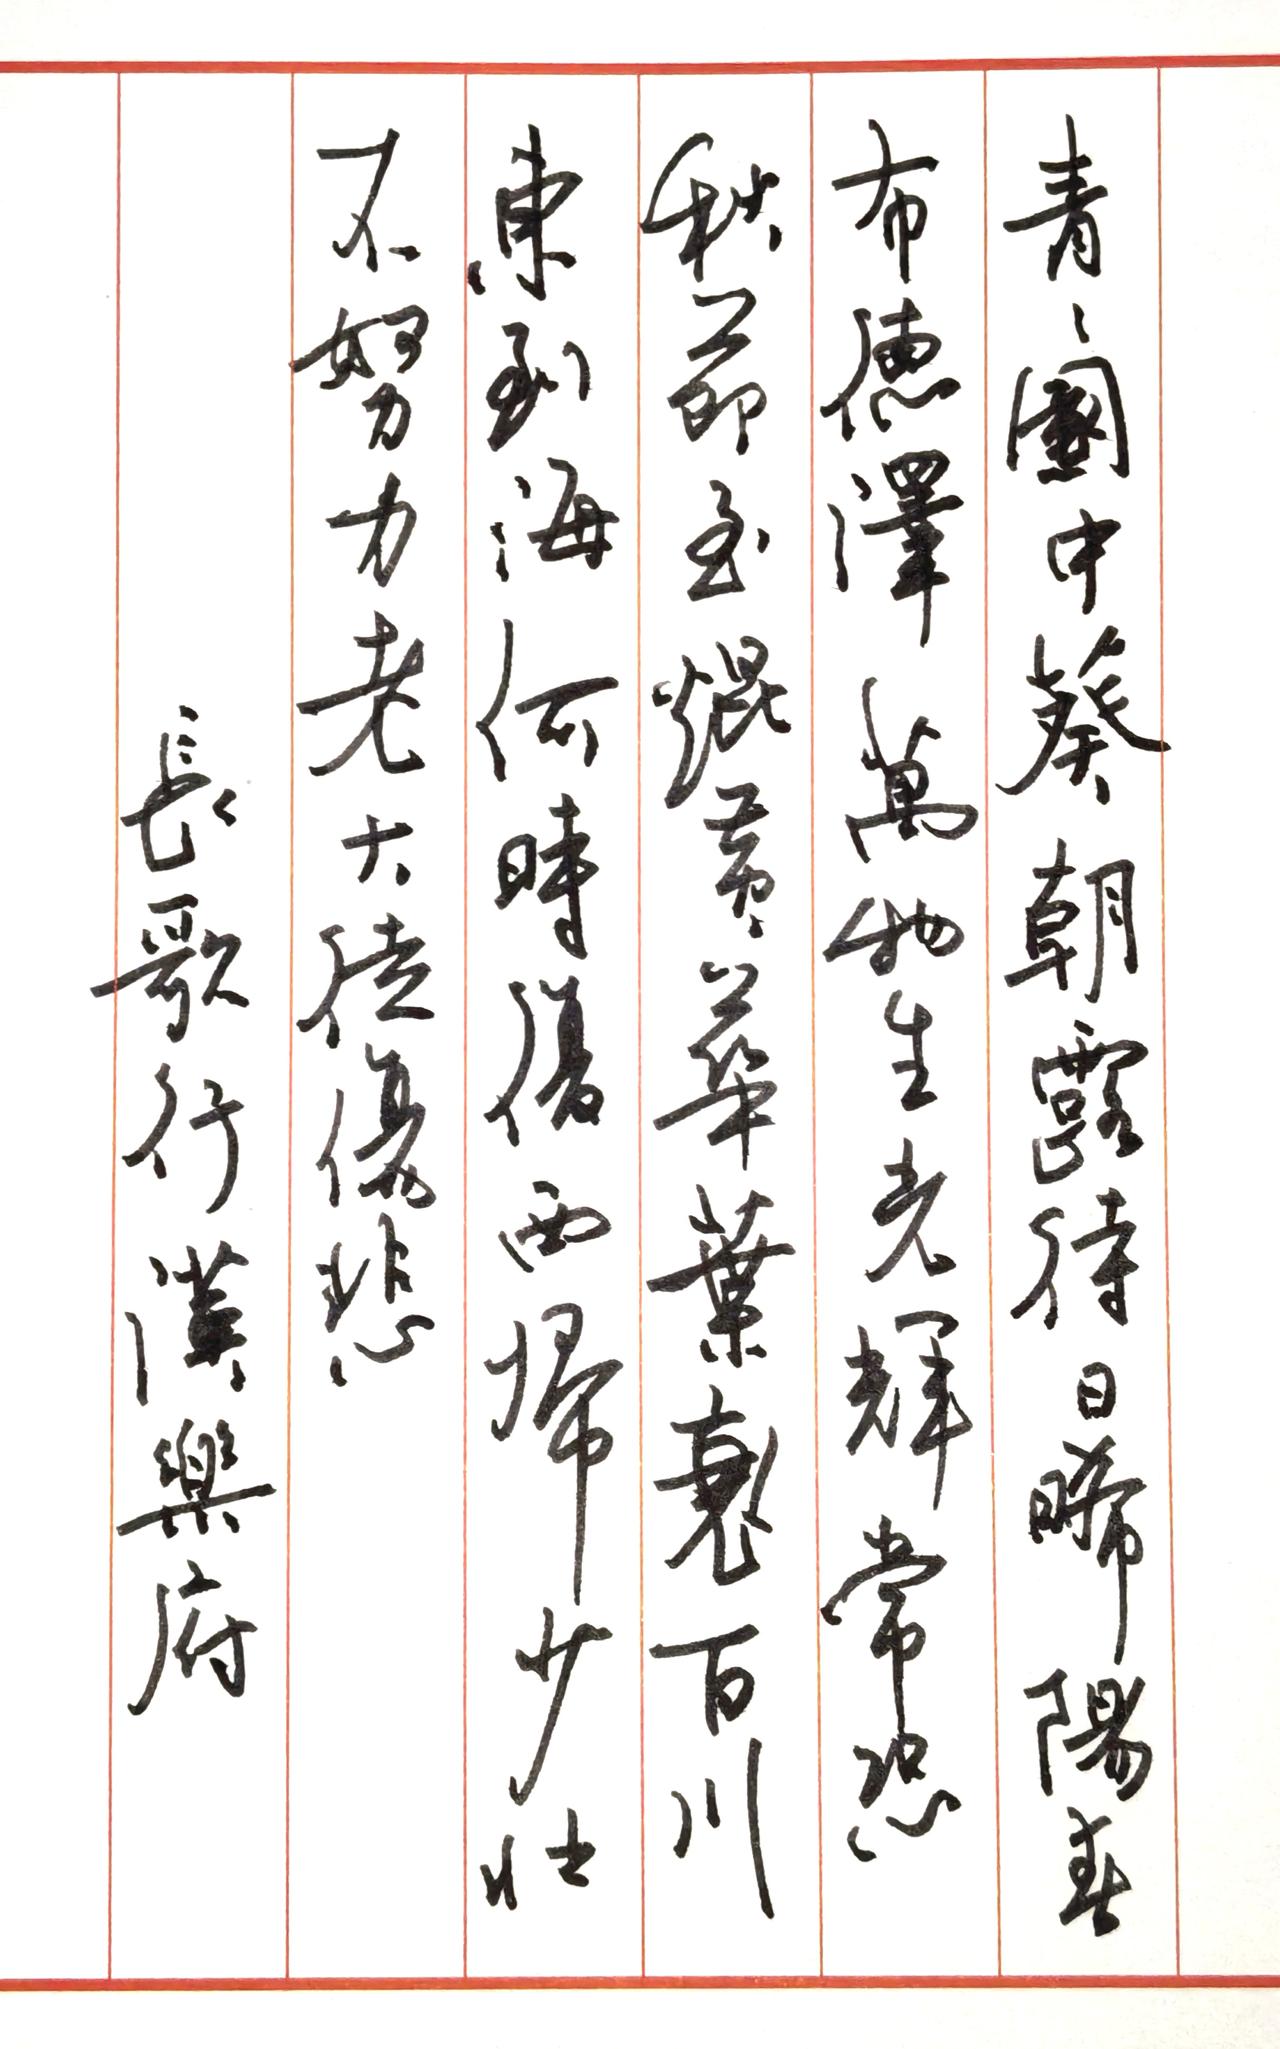 青々園中葵朝露待日晞陽春
布德澤萬物生光輝常恐
秋節至焜黃華葉衰百川
東到海何時復西歸少壯
不努力老大徒傷悲
長歌行漢樂府